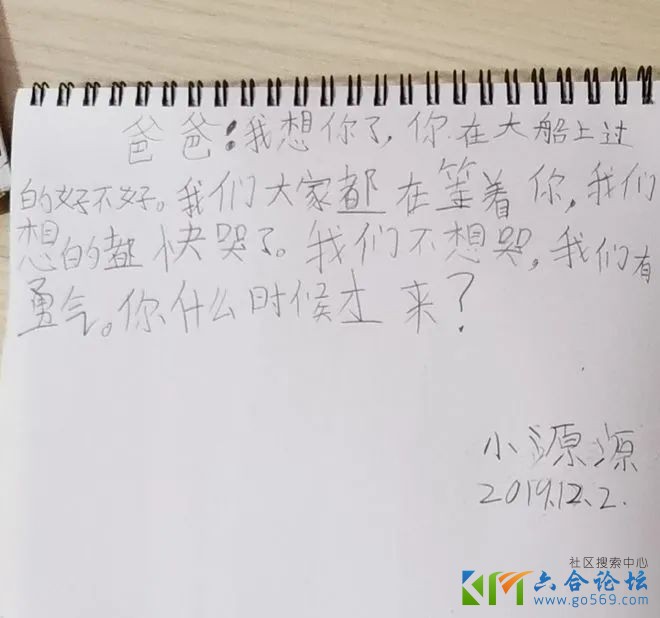 爸爸:我想你了,你在大船上过
的好不好。我们大家都在等着你,我们
想的都快哭了。我们不想哭,我们有
勇气。你什么时候才来?
小源源
2019.12.2.
社区搜索中心
KM 六合论坛
www.go569.com